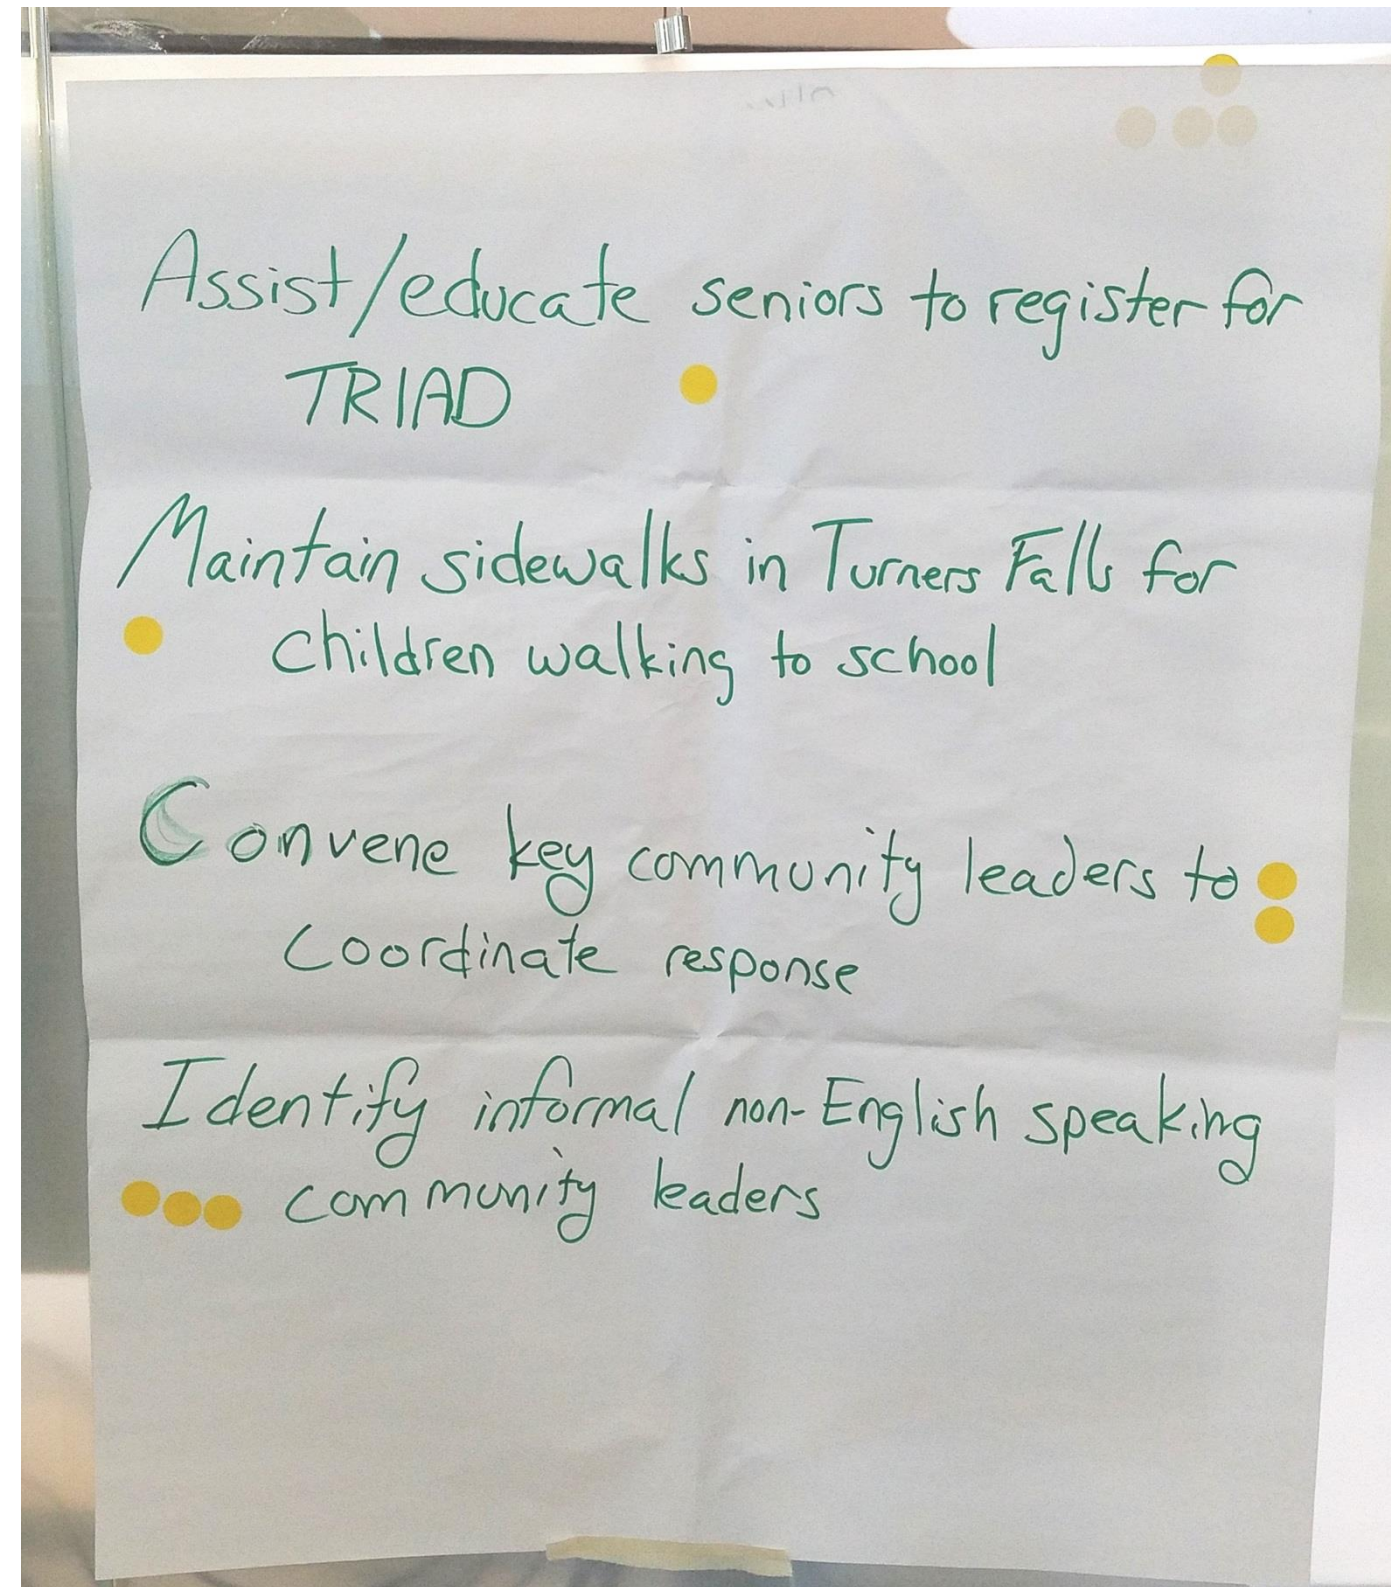 Assist/educate seniors to register for
TRIAD
Maintain sidewalks in Turners Falls for
children walking to school
Convene key community leaders to
Coordinate response
Identify informal non-English speaking
community leaders